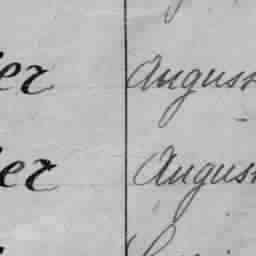 er Auguss
er Augus